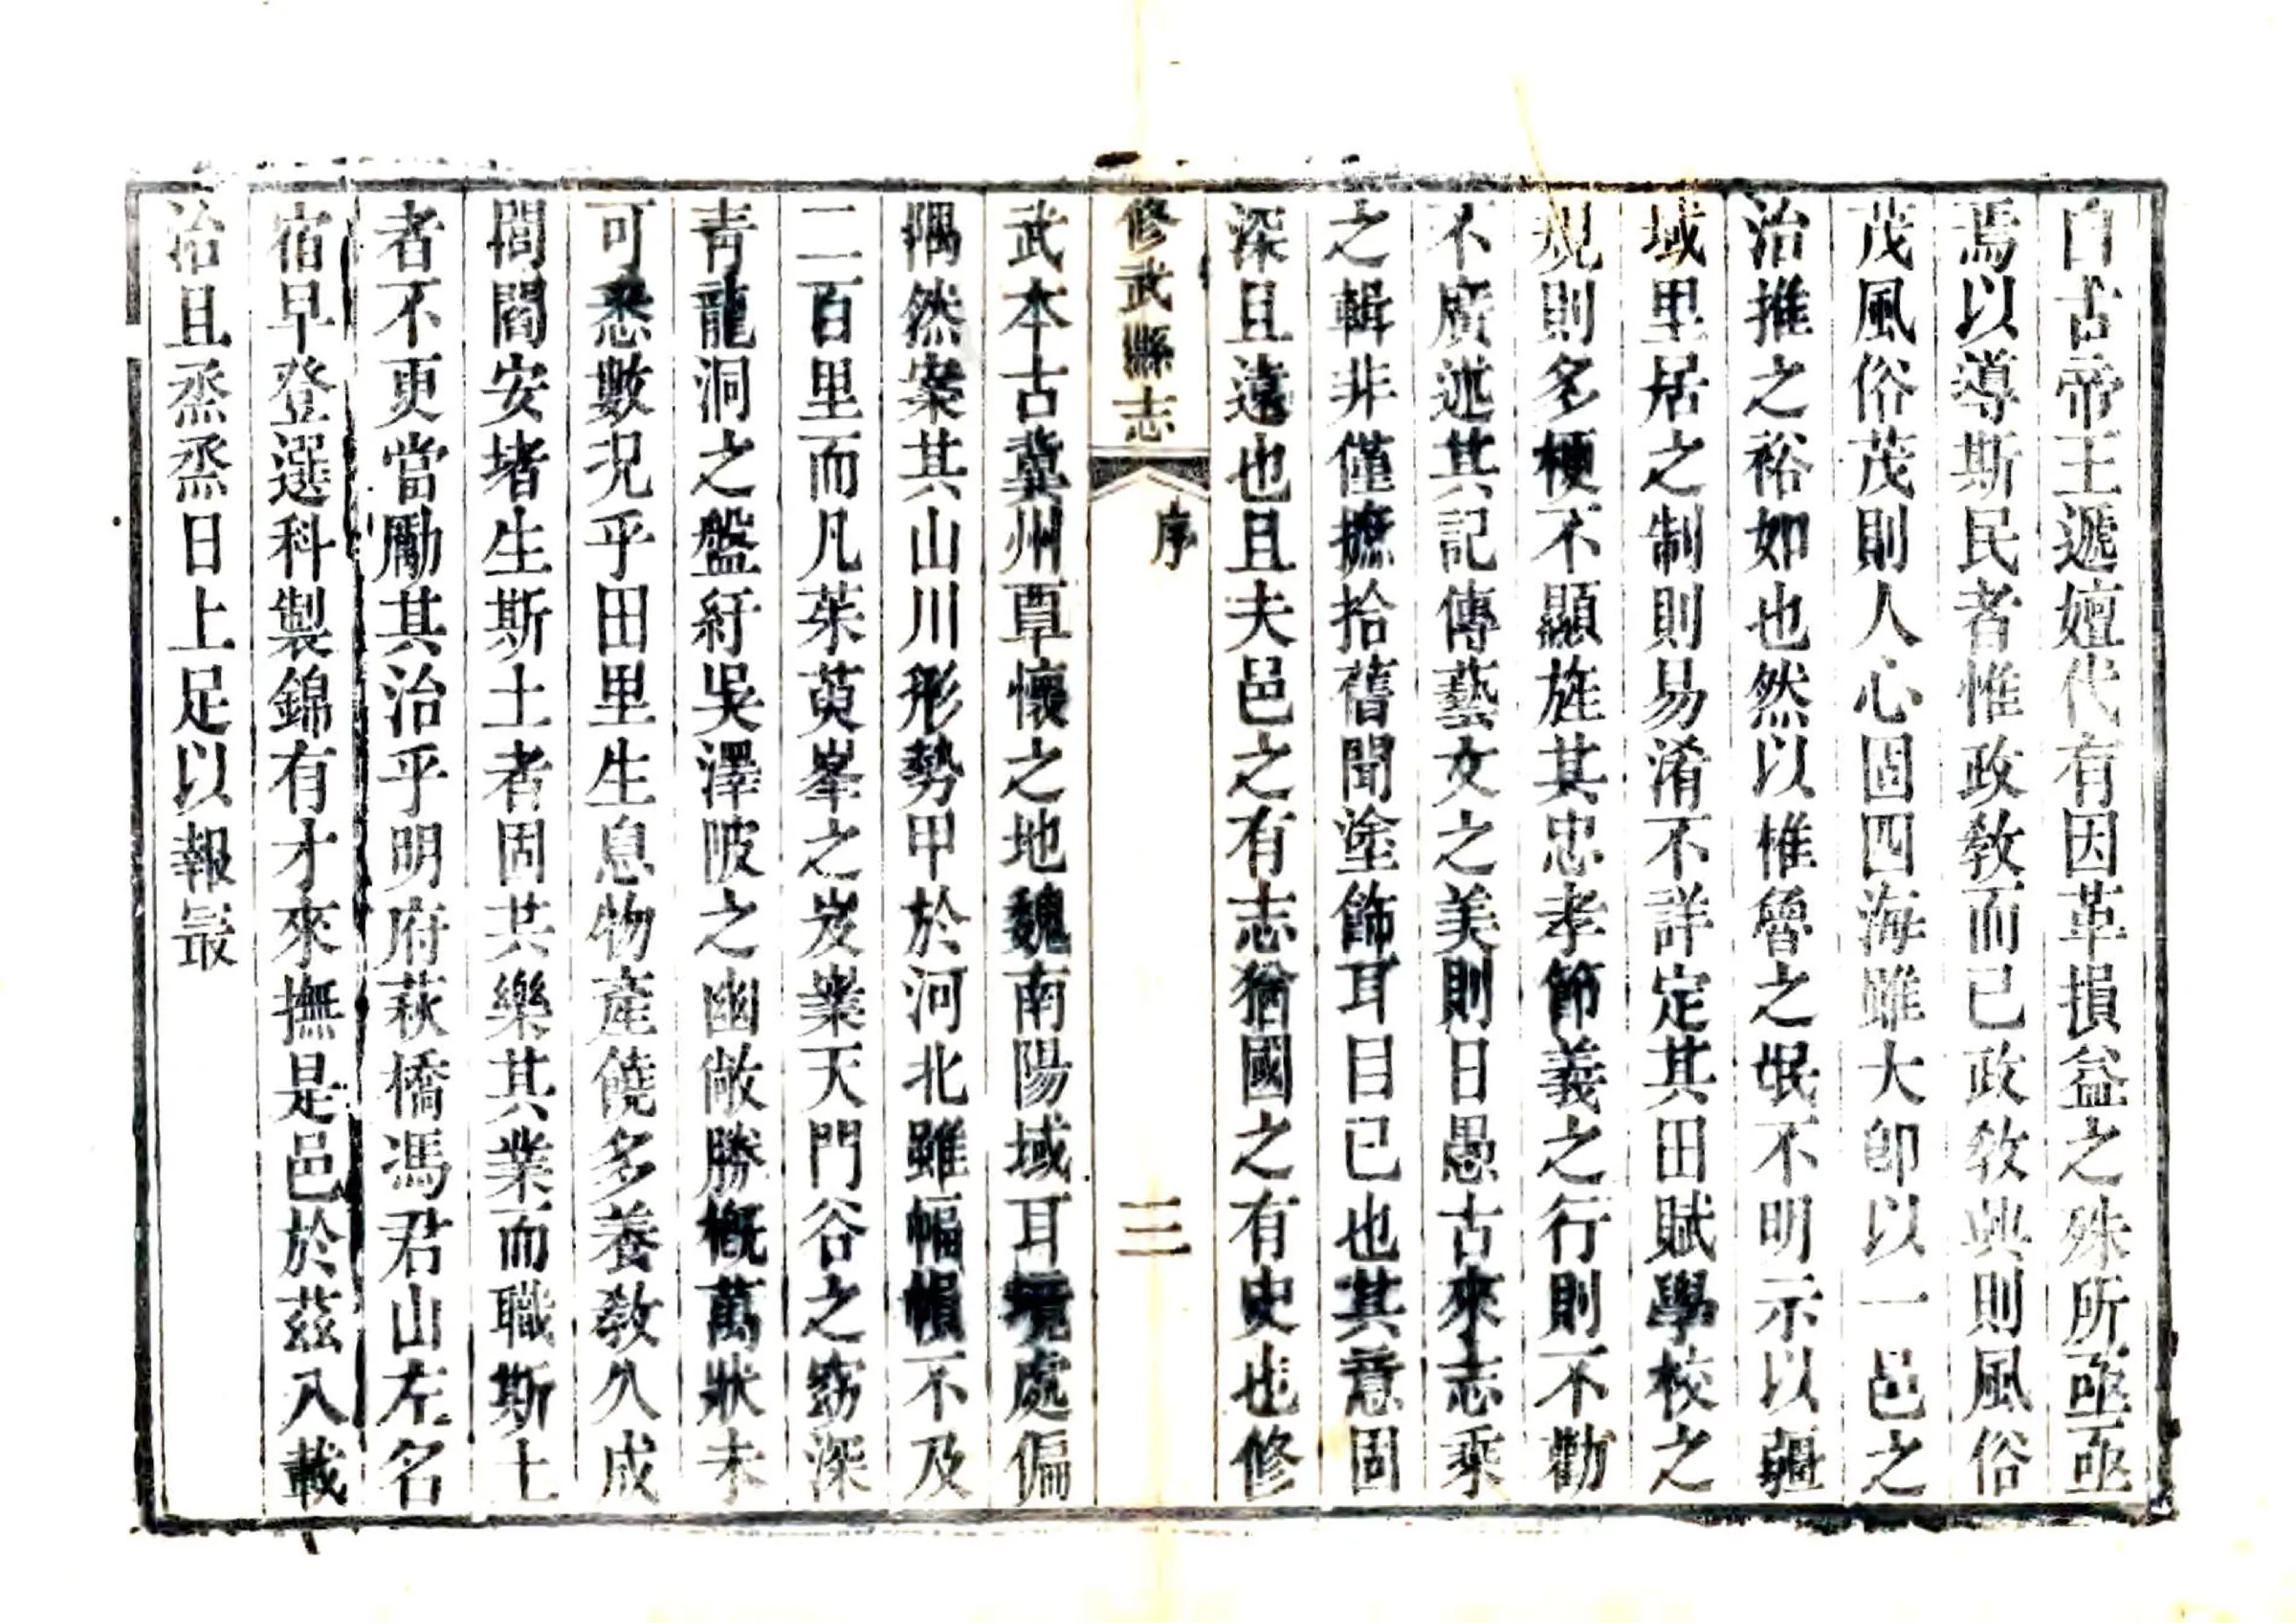 自古帝王遞嬗代有因革損益之殊所亟亟
焉以導斯民者惟政敎而已政敎興則風俗
茂風俗茂則人心固四海雖大卽以一邑之
治推之裕如也然以惟魯之氓不明示以疆
域里居之制則易淆不詳定其田賦學校之
規則多梗不顯旌其忠孝節義之行則不勸
不廣述其記傳藝文之美則日愚古來志乘
之輯非僅摭拾舊聞塗飾耳目已也其意固
深且遠也且夫邑之有志猶國之有史也修
修武縣志
序
三
武本古冀州覃懷之地魏南陽域耳境處偏
隅然案其山川形勢甲於河北雖幅幀不及
二百里而凡茱萸峯之岌嶪天門谷之窈深
靑龍洞之盤紆吳澤陂之幽敞勝槪萬狀未
可悉數況乎田里生息物產饒多養敎久成
閭閻安堵生斯土者固共樂其業而職斯土
者不更當勵其治乎明府萩橋馮君山左名
宿早登選科製錦有才來撫是邑於茲八載
治且烝烝日上足以報最